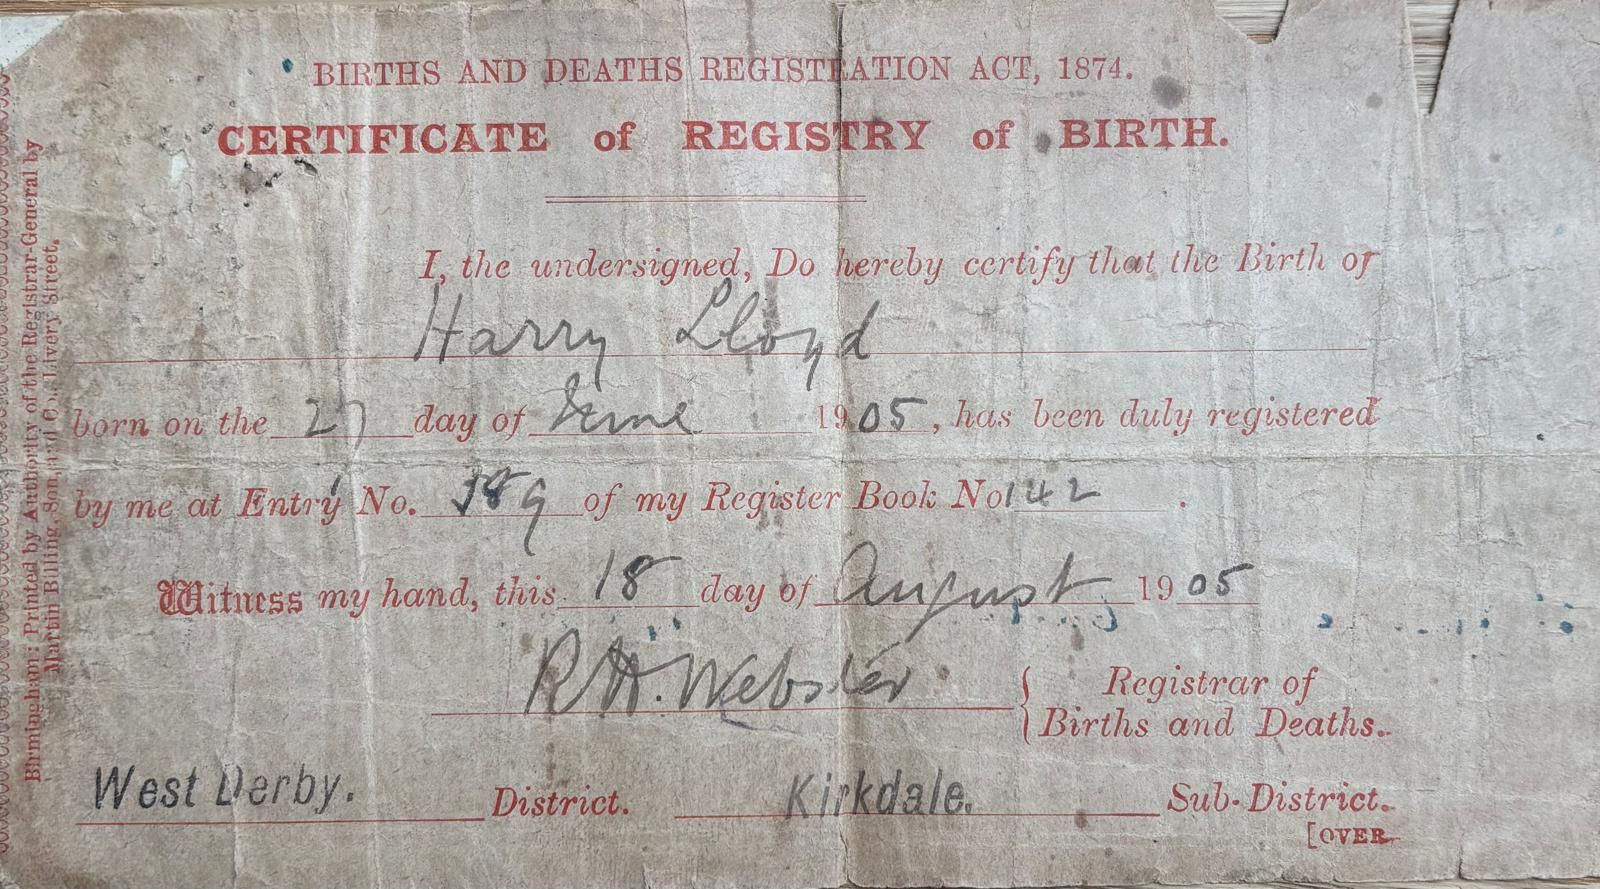 BIRTHS AND DEATHS REGISTRATION ACT, 1874.
CERTIFICATE of REGISTRY of BIRTH.
I, the undersigned, Do hereby certify that the Birth of
Harry Lloyd
born on the 27 day of June 1905, has been duly registered
by me at Entry No. 389 of my Register Book No 142 .
Witness my hand, this 18 day of August 1905
R H. Webster { Registrar of
Births and Deaths.
West Derby. District. Kirkdale. Sub-District.
[OVER.
Birmingham: Printed by Authority of the Registrar-General by
Martin Billing, Son, and Co., Livery Street.